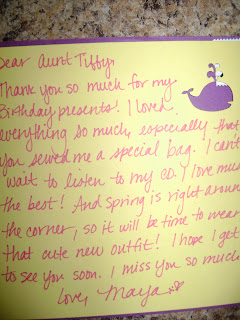 Dear Aunt Tiffy,
Thank you so much for my
Birthday presents! I loved
everything so much, especially that
you sewed me a special bag. I can't
wait to listen to my CD. I love music
the best! And spring is right around
the corner, so it will be time to wear
that cute new outfit! I hope I get
to see you soon. I miss you so much
Love, Maya